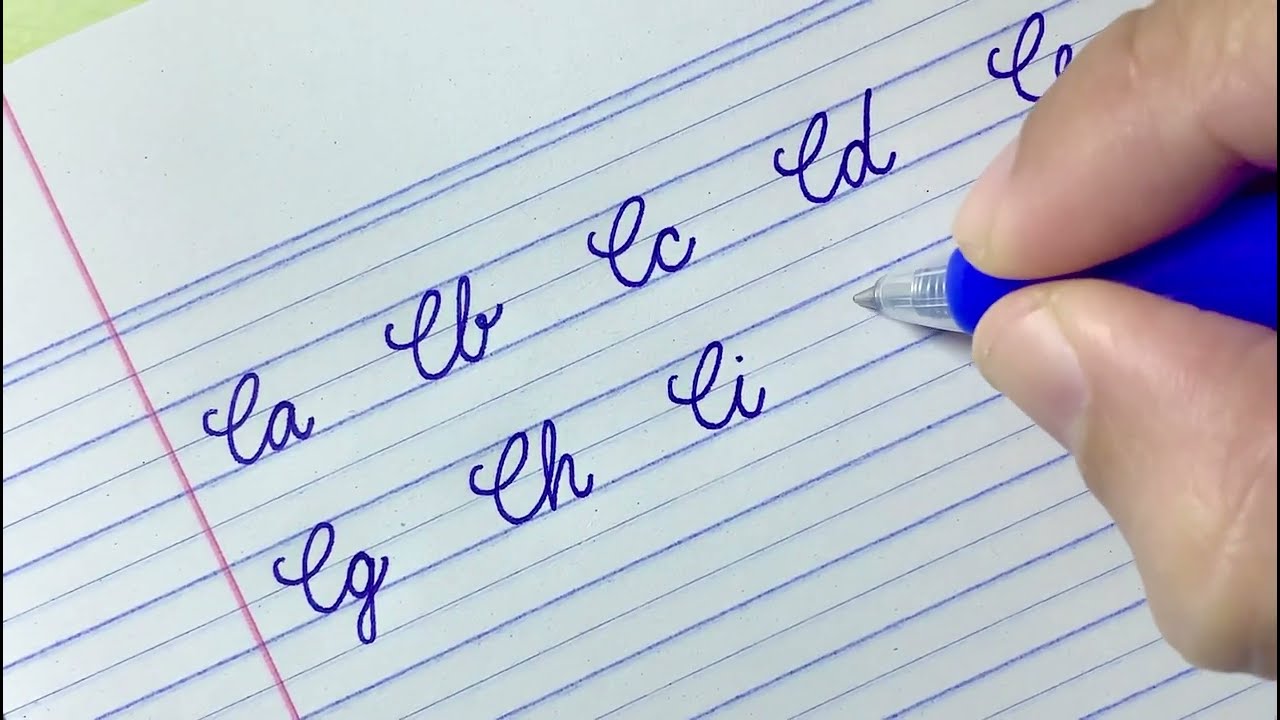 Ca Cb Cc Cd Ce
Cg Ch Ci